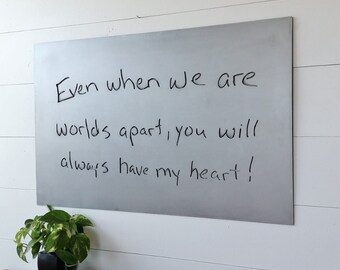 Even when we are
worlds apart, you will
always have my heart!